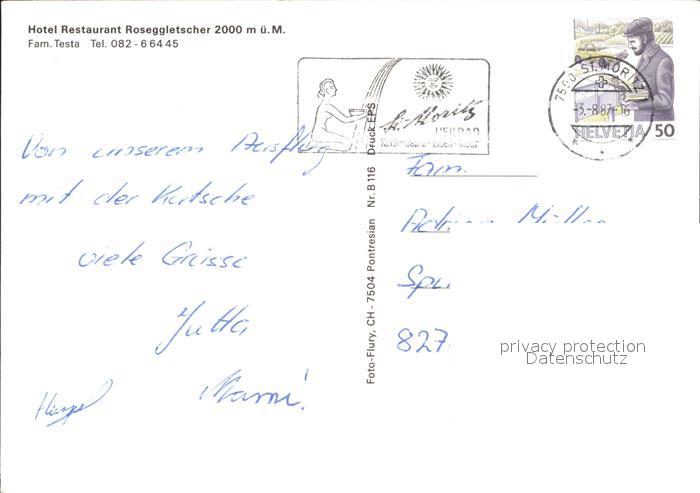 Hotel Restaurant Roseggletscher 2000 m ü. M.
Fam. Testa Tel. 082 - 6 64 45
St. Moritz
HEILBAD
7500 ST. MORITZ
-3.-8.87
HELVETIA 50
Von unserem Ausflug
mit der Kutsche
viele Grüsse
Jutta
Mami
Foto-Flury, CH - 7504 Pontresian Nr. B 116 Druck EPS
Fam.
Müller
827
privacy protection
Datenschutz